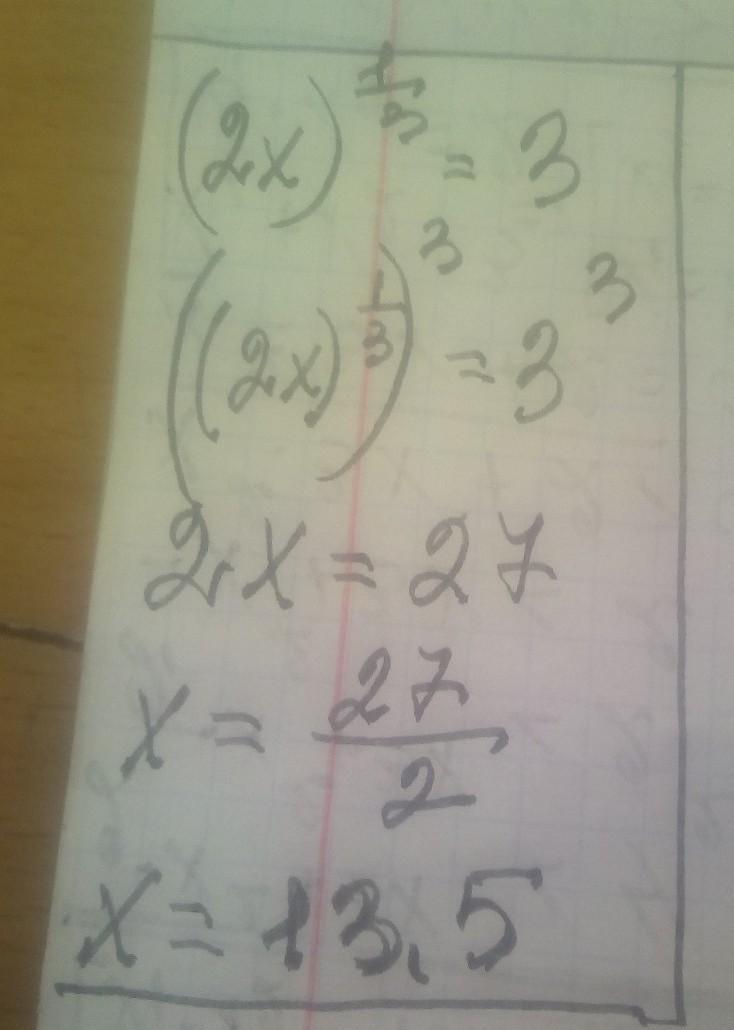 (2x)^{\frac{1}{3}} = 3
((2x)^{\frac{1}{3}})^3 = 3^3
2x = 27
x = \frac{27}{2}
x = 13,5